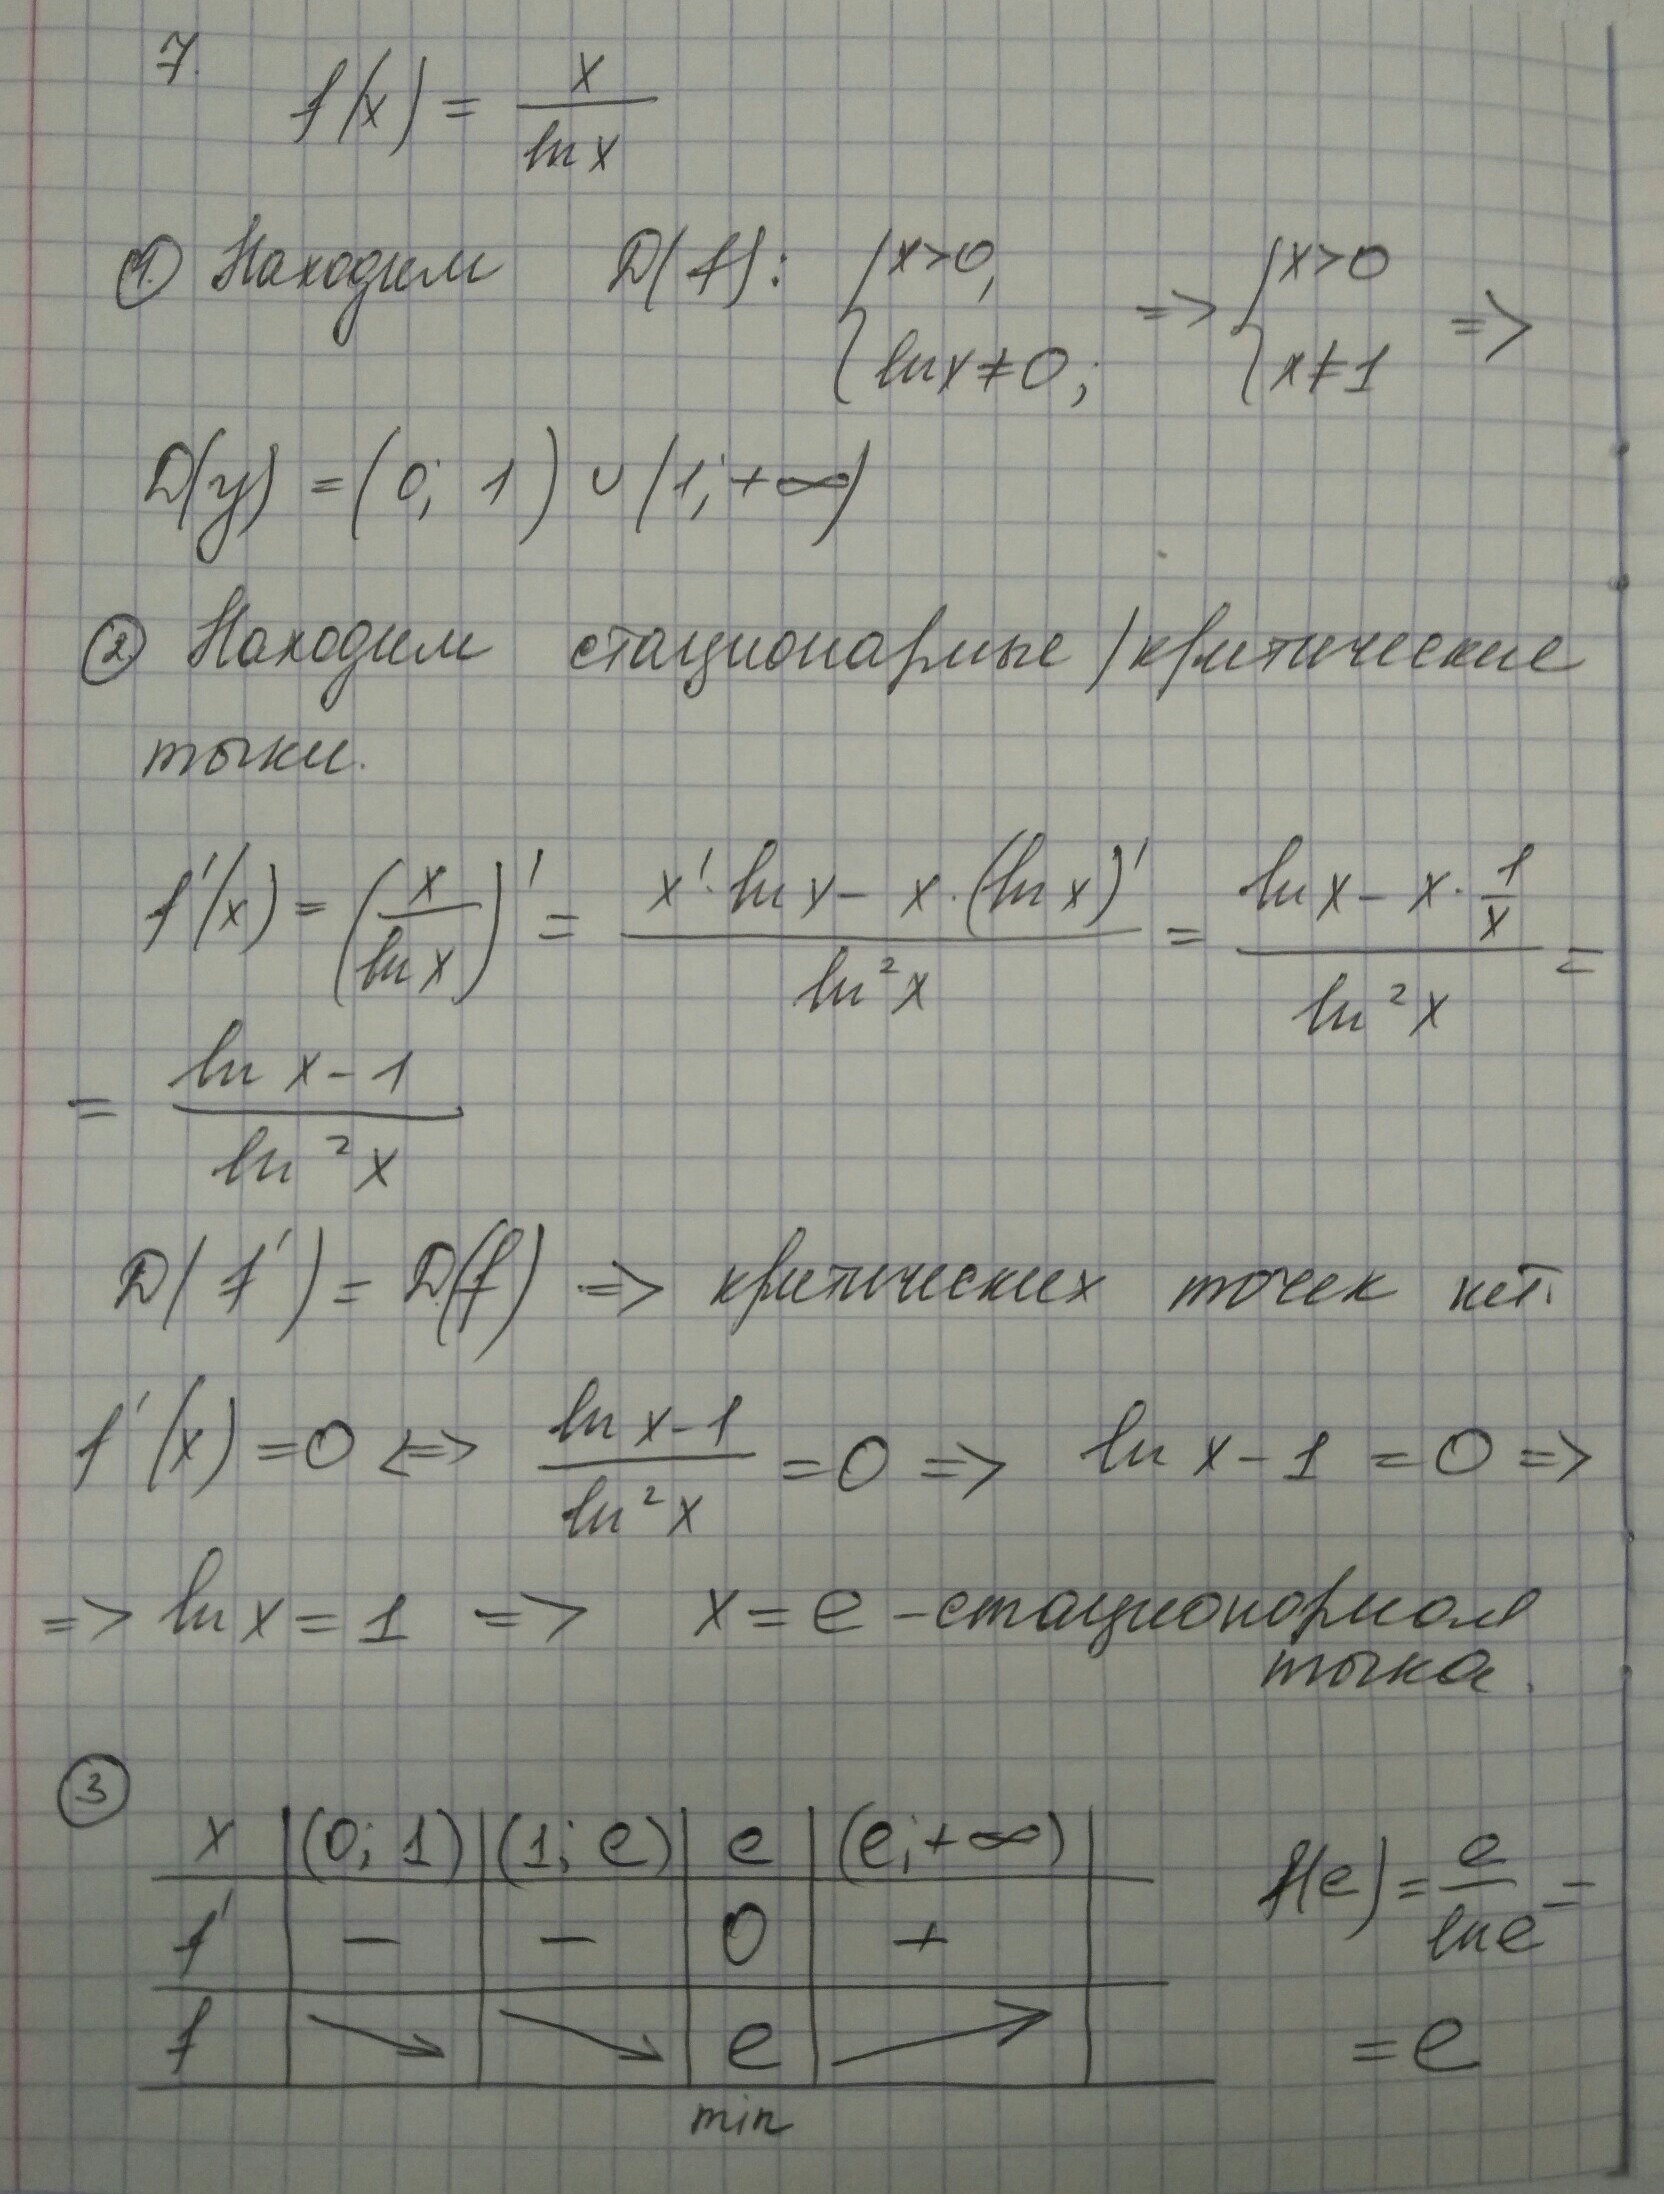 7.
f(x) = x / ln x
① Находим D(f): { x>0, ln x ≠ 0; => { x>0 x≠1 =>
D(y) = (0; 1) ∪ (1; +∞)
② Находим стационарные / критические
точки.
f'(x) = (x / ln x)' = (x' · ln x – x · (ln x)') / ln²x = (ln x – x · 1/x) / ln²x =
= (ln x – 1) / ln²x
D(f') = D(f) => критических точек нет.
f'(x) = 0 <=> (ln x – 1) / ln²x = 0 => ln x – 1 = 0 =>
=> ln x = 1 => x = e – стационарная
точка.
③
x | (0; 1) | (1; e) | e | (e; +∞) |
f' | – | – | 0 | + |
f | ↘ | ↘ | e | ↗ |
min
f(e) = e / ln e =
= e